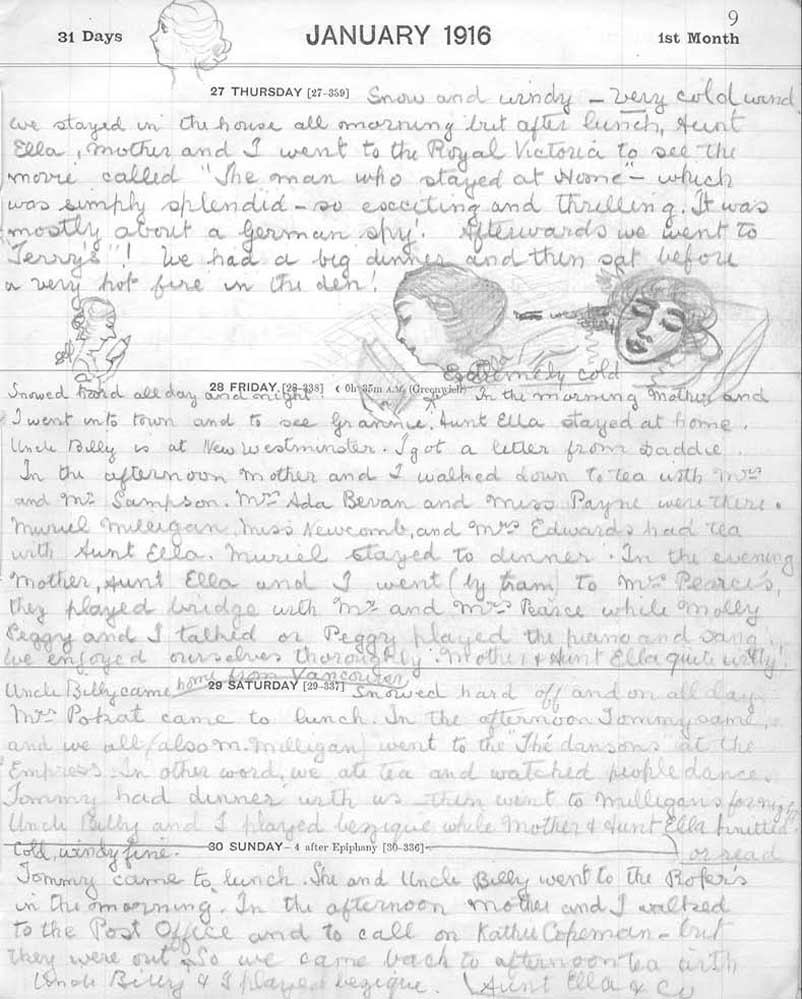 9
31 Days JANUARY 1916 1st Month
27 THURSDAY [27-339] Snow and windy – very cold wind
we stayed in the house all morning but after lunch, Aunt
Ella, Mother and I went to the Royal Victoria to see the
movie called "The man who stayed at Home" – which
was simply splendid – so exciting and thrilling. It was
mostly about a German spy! Afterwards we went to
"Terry's"! We had a big dinner and then sat before
a very hot fire in the den!
Extremely cold
28 FRIDAY [28-338] 0h 35m A.M. (Greenwich)
Snowed hard all day and night! In the morning Mother and
I went into town and to see Grannie. Aunt Ella stayed at home.
Uncle Billy is at New Westminster. I got a letter from Daddie.
In the afternoon Mother and I walked down to tea with Mrs
and Mr Sampson. Mrs Ada Bevan and Miss Payne were there.
Muriel Milligan, Miss Newcomb, and Mrs Edwards had tea
with Aunt Ella. Muriel stayed to dinner. In the evening
Mother, Aunt Ella and I went (by tram) to Mrs Pearce's,
they played bridge with Mr and Mrs Pearse while Molly
Peggy and I talked or Peggy played the piano and sang.
We enjoyed ourselves thoroughly. Mother & Aunt Ella quite
Uncle Billy came home from Vancouver
29 SATURDAY [29-337] Snowed hard off and on all day.
Mrs came to lunch. In the afternoon Tommy came,
and we all (also M. Milligan) went to the "Thé dansons" at the
Empress. In other word, we ate tea and watched people dance.
Tommy had dinner with us then went to Milligans for night
Uncle Billy and I played bezique while Mother & Aunt Ella knitted
or read
30 SUNDAY – 4 after Epiphany [30-336]
Cold, windy, fine.
Tommy came to lunch. She and Uncle Billy went to the Roper's
in the morning. In the afternoon Mother and I walked
to the Post Office and to call on Copeman – but
they were out. So we came back to afternoon tea with
Uncle Billy & I played bezique. (Aunt Ella & Co